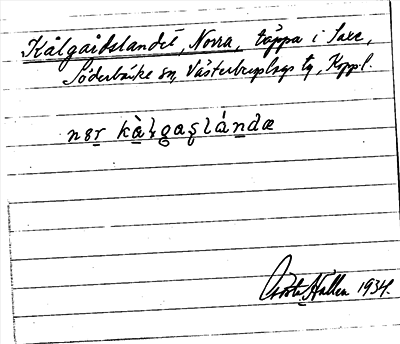 Kålgårdslandet, Norra, täppa i Saxe,
Söderbärke sn, Västerbergslags tg, Koppl.
nɞr kàlgaslándæ
Hallen 1934.